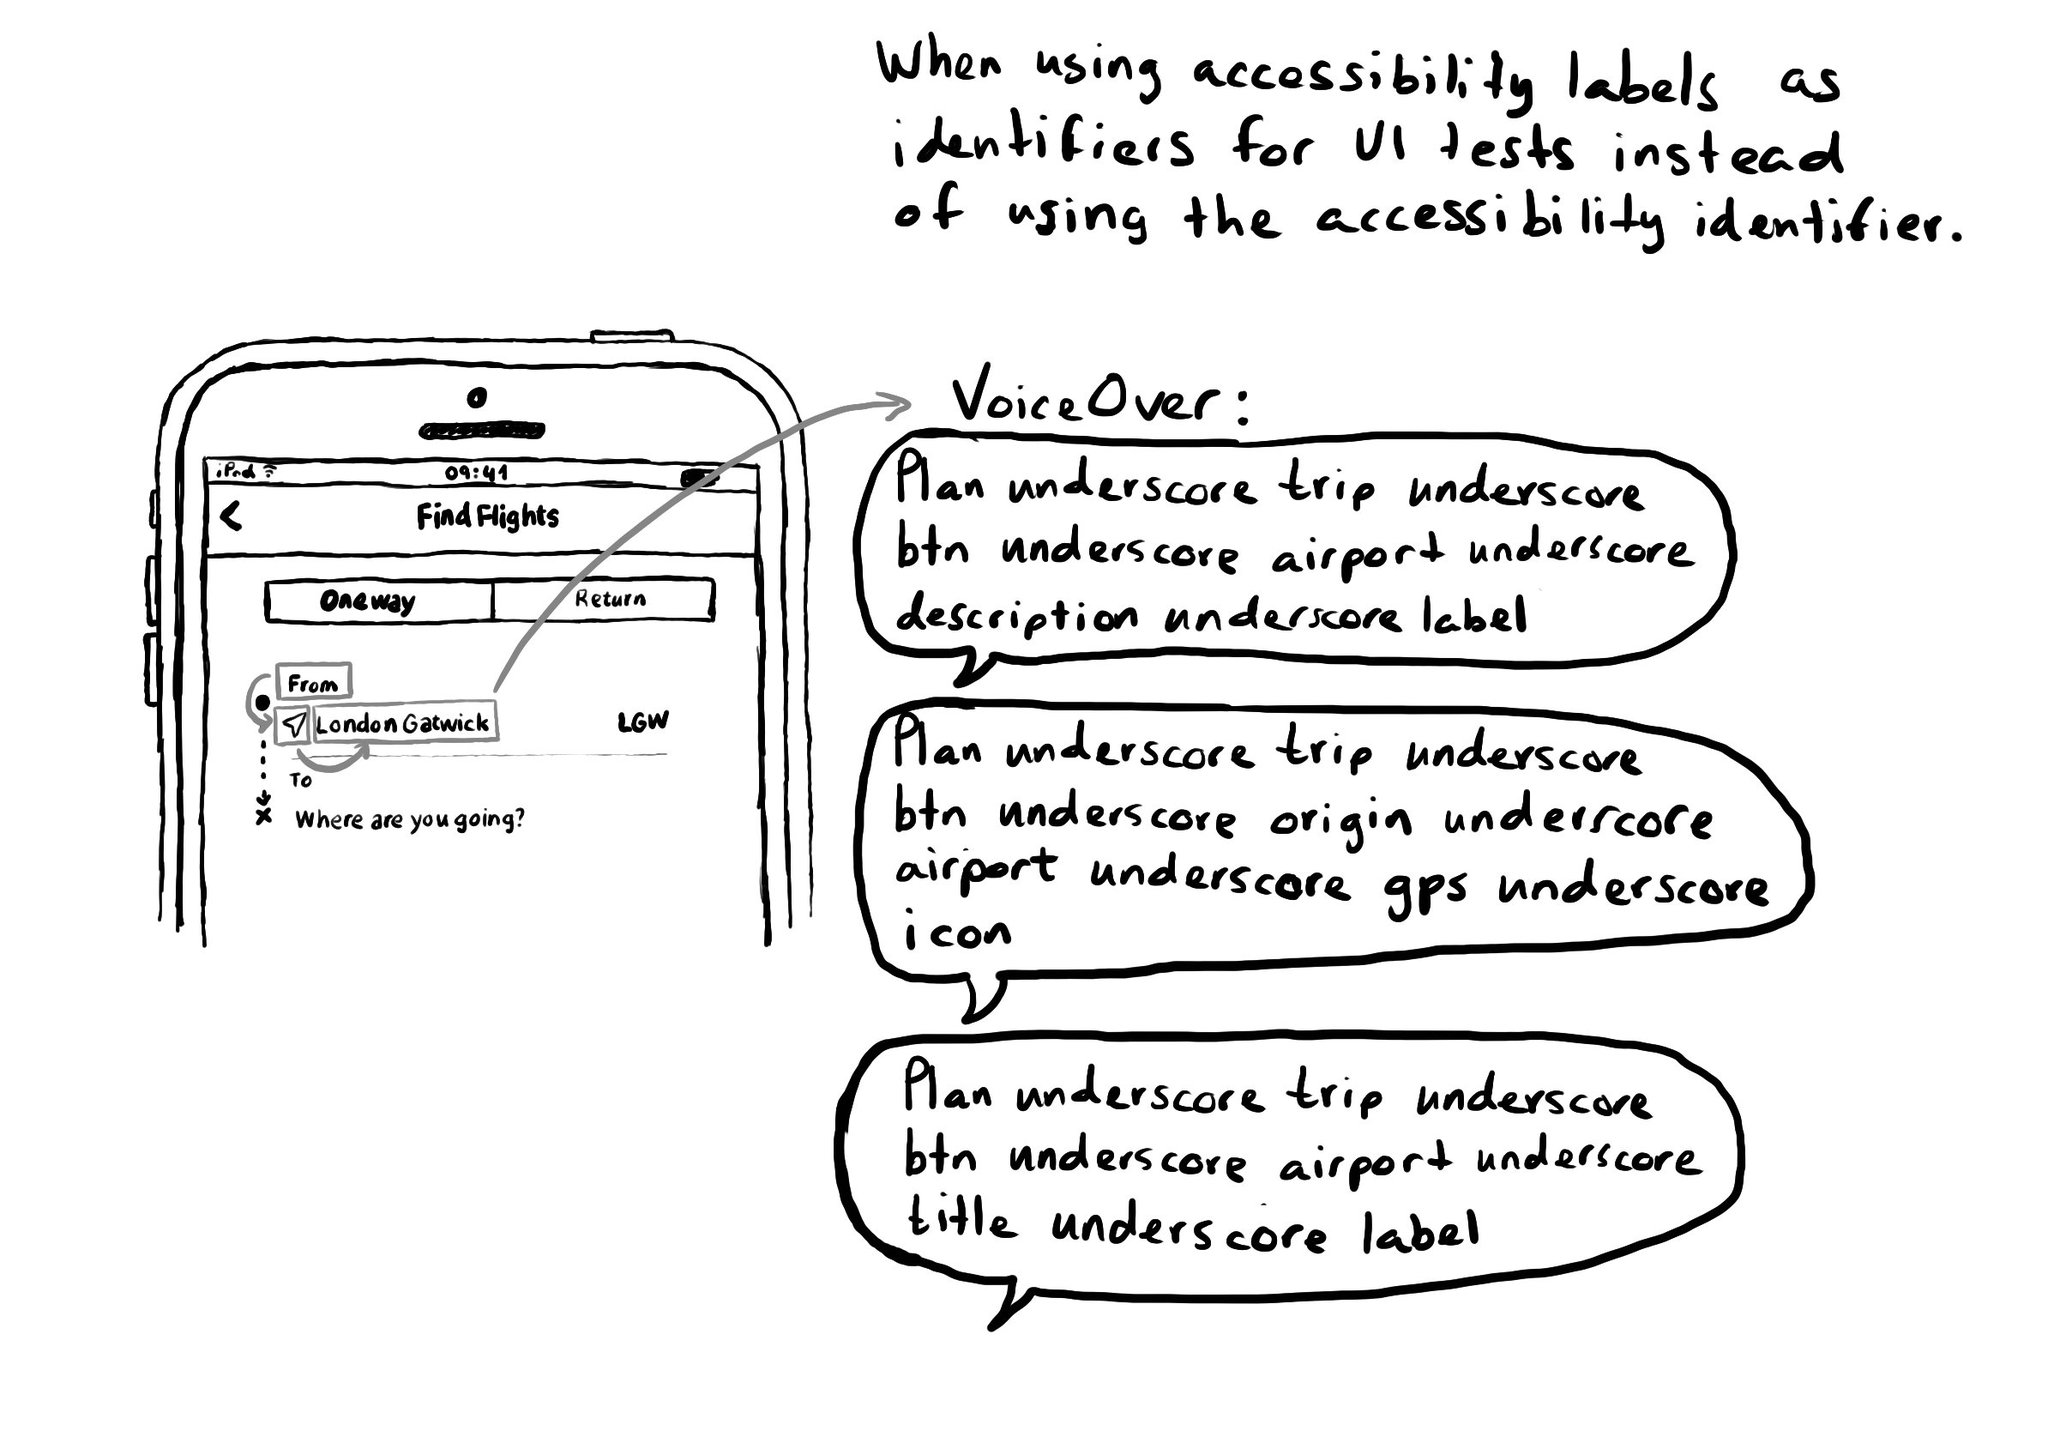 When using accessibility labels as
identifiers for UI tests instead
of using the accessibility identifier.
iPod
09:41
<
Find Flights
One way
Return
From
London Gatwick
LGW
To
Where are you going?
VoiceOver:
Plan underscore trip underscore
btn underscore airport underscore
description underscore label
Plan underscore trip underscore
btn underscore origin underscore
airport underscore gps underscore
icon
Plan underscore trip underscore
btn underscore airport underscore
title underscore label